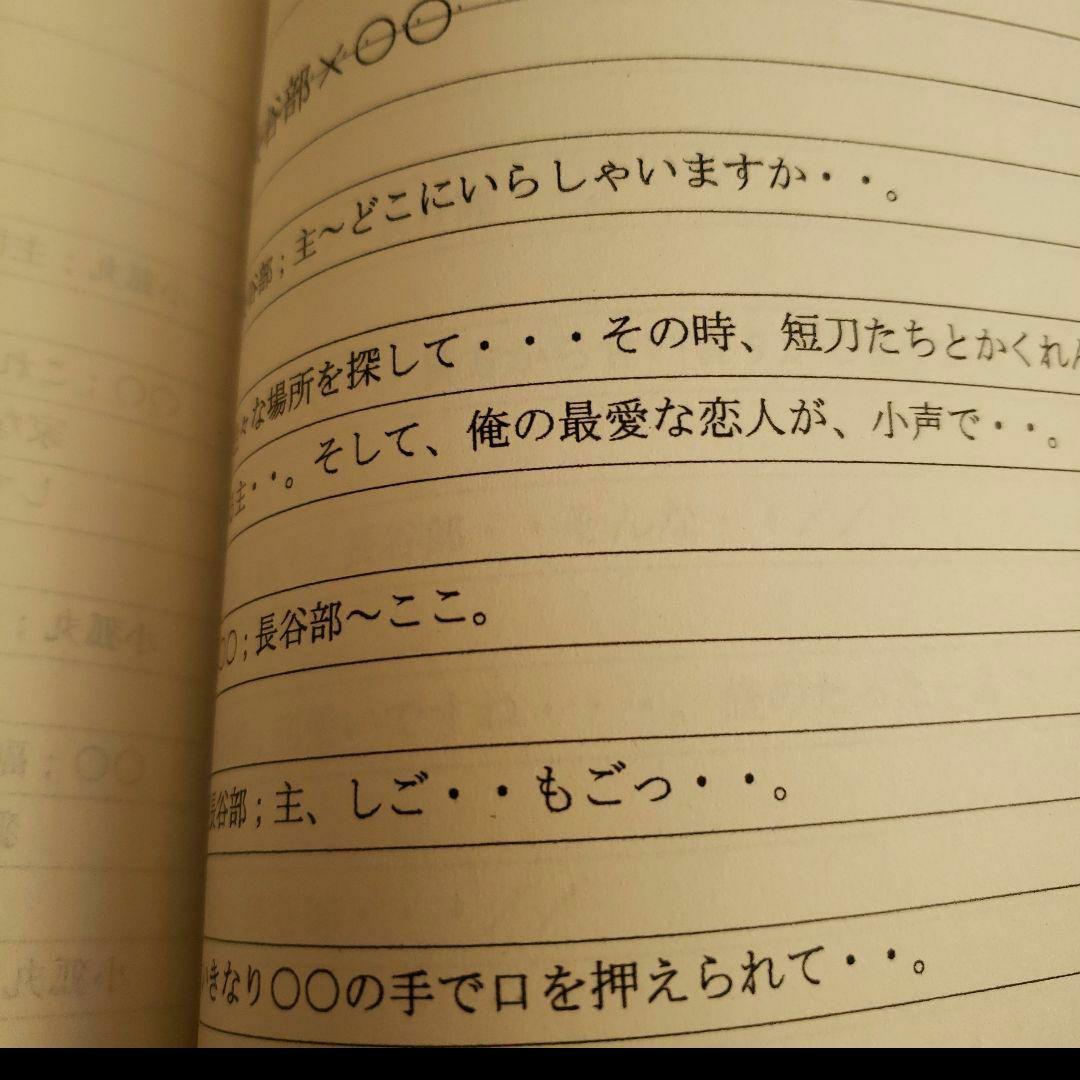 谷部×〇〇
谷部；主～どこにいらしゃいますか・・。
々な場所を探して・・・その時、短刀たちとかくれん
主・・。そして、俺の最愛な恋人が、小声で・・。
〇〇；長谷部～ここ。
長谷部；主、しご・・もごっ・・。
いきなり〇〇の手で口を押えられて・・。